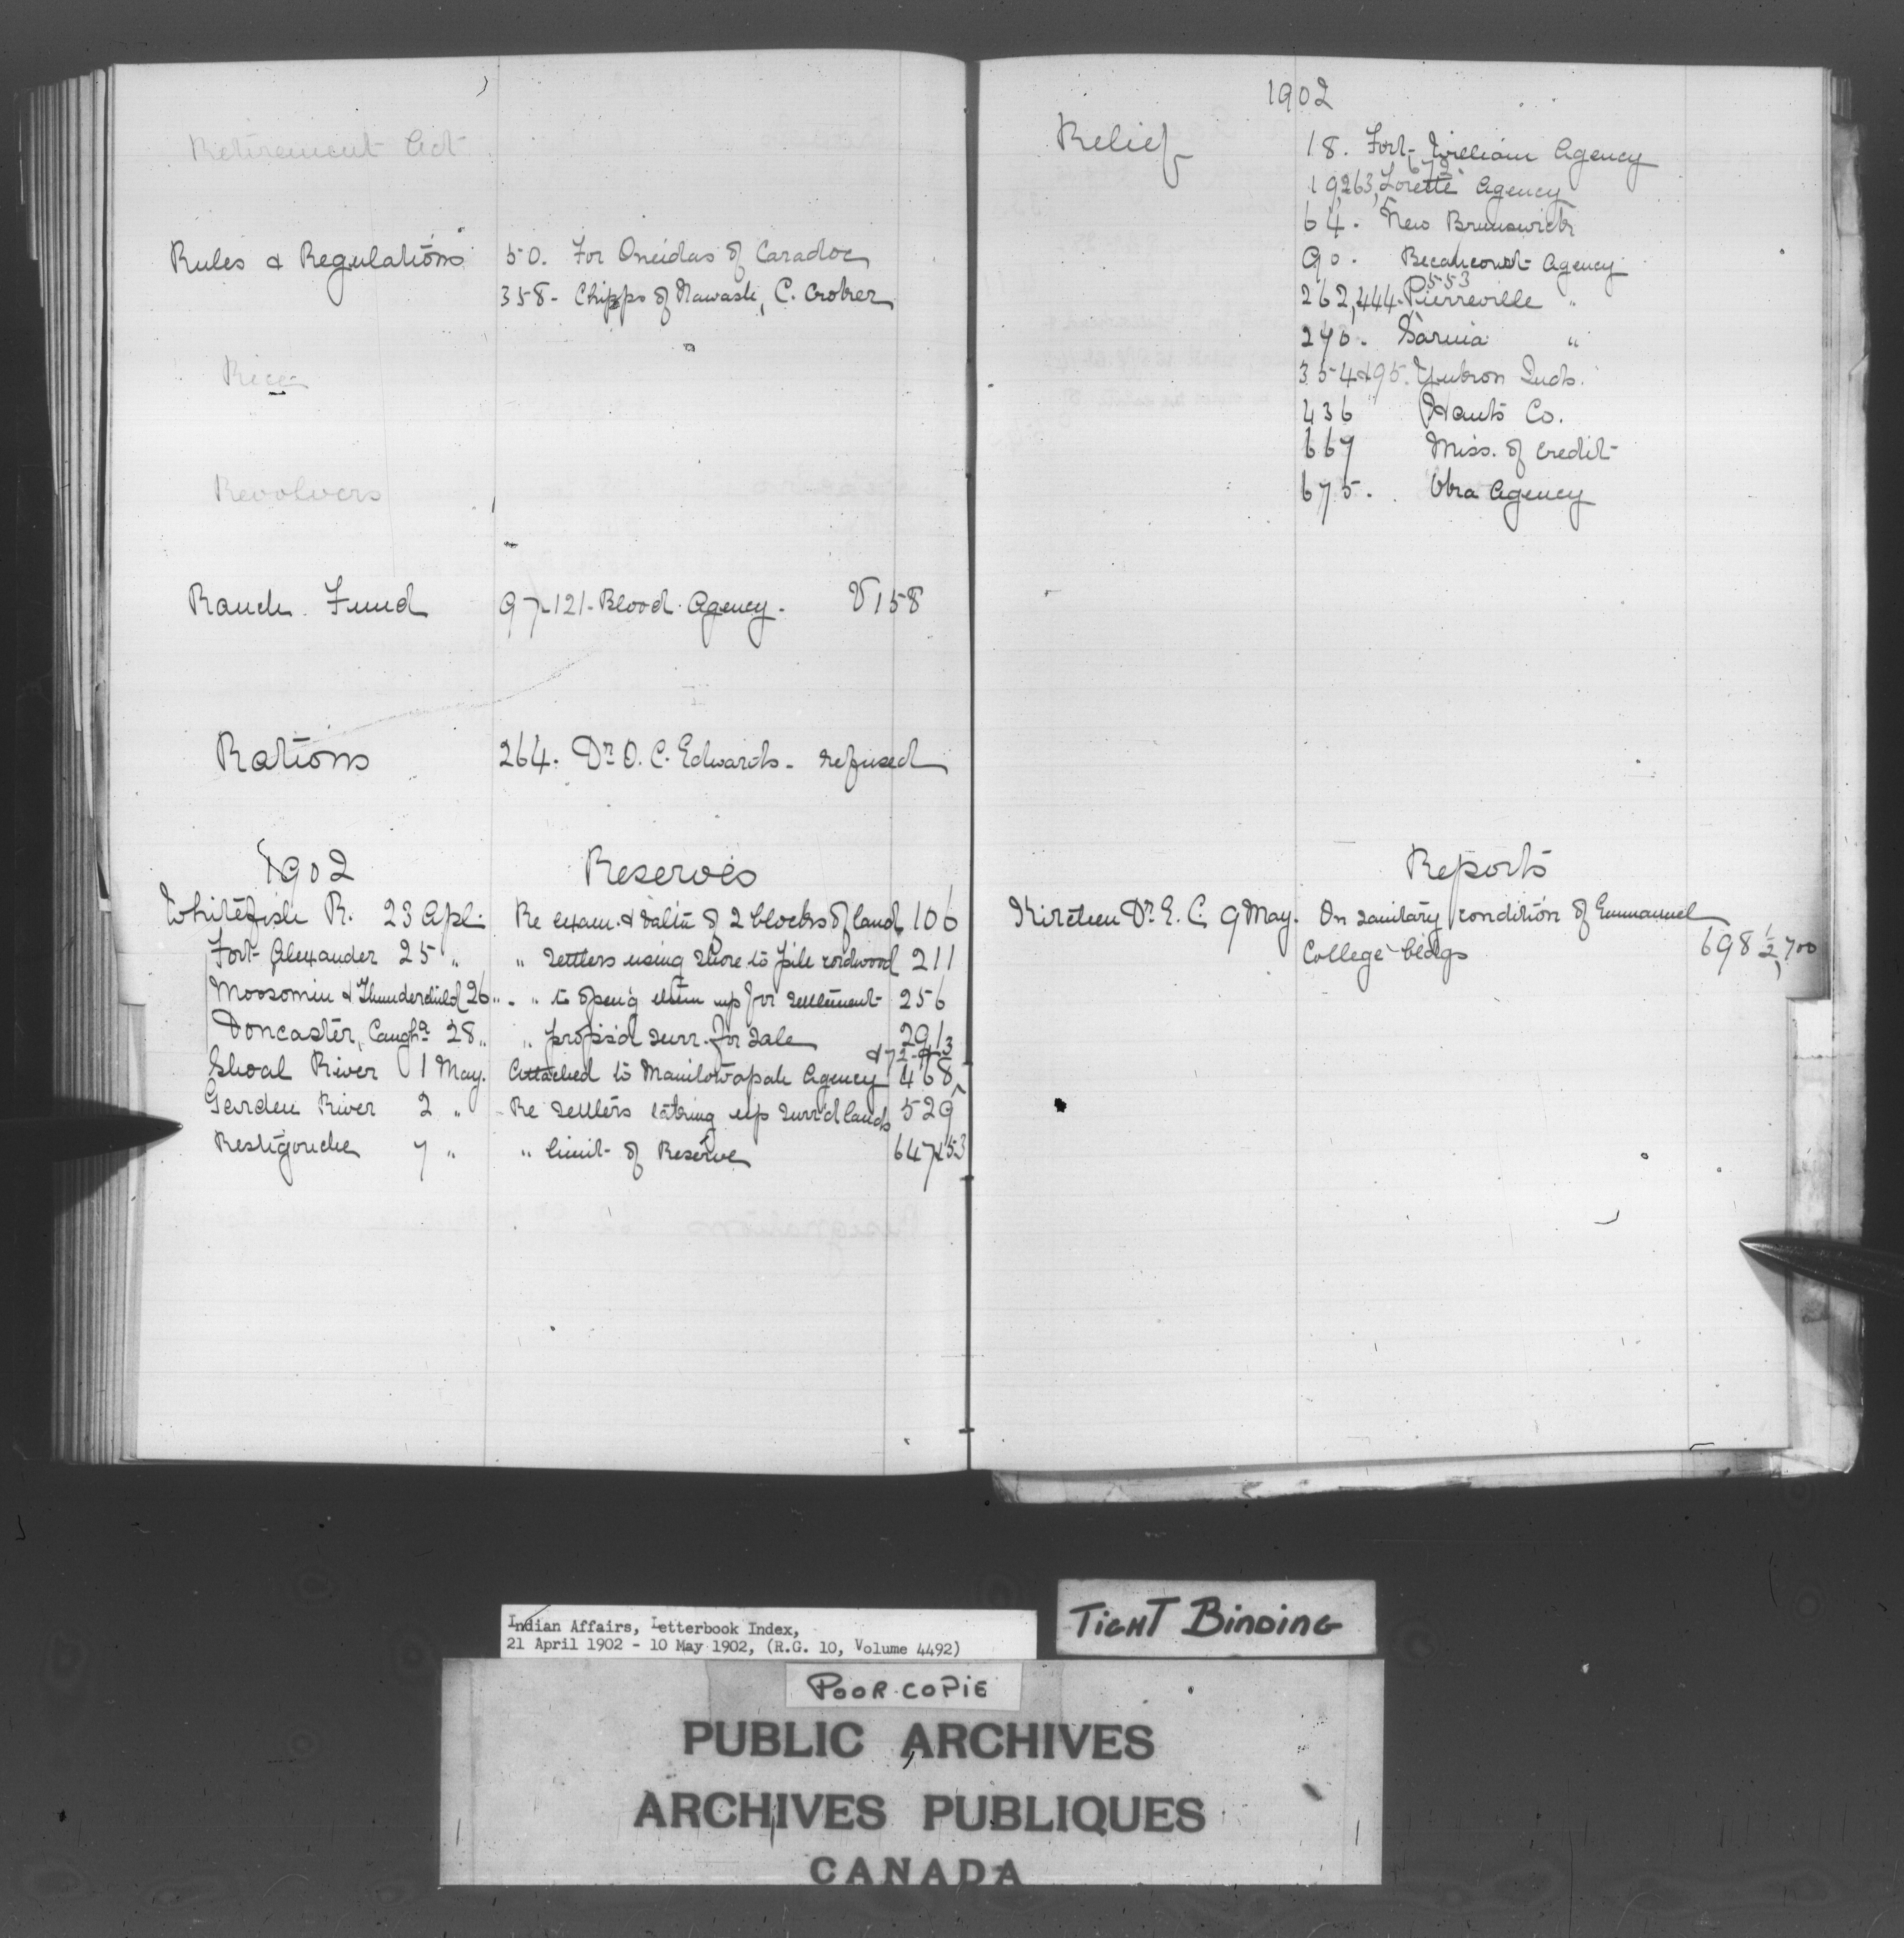 Retirement Act
Rules & Regulations 50. For Oneidas of Caradoc
358 - Chipps of Nawash, C. Croker
Rice
Revolvers
Ranch Fund 97-121- Blood Agency. V 158
Rations 264. Dr O. C. Edwards - refused
1902 Reserves
Whitefish R. 23 Apl. Re exam. & val'n of 2 blocks of land 106
Fort Alexander 25 " " settlers using shore to pile cordwood 211
Moosomin & Thunderchild 26 " " to open'g them up for settlement 256
Doncaster, Caugh'a 28 " " propos'd surr. for sale 291
Shoal River 1 May. Attached to Manitowapah Agency 468
Garden River 2 " Re settlers taking up surr'd lands 529
Restigouche 7 " " limit of Reserve 647 & 53
1902
Relief 18. Fort William Agency
672
19,263, Lorette Agency
64. New Brunswick
90. Becancourt Agency
553
262,444. Pierreville "
290. Sarnia "
354 & 95. Yukon Inds.
436 Hants Co.
669 Miss. of Credit
675. Viva Agency
Reports
Kirchen Dr. E. C. 9 May. On sanitary condition of Emmanuel
College bldgs 698 1/2, 700
Indian Affairs, Letterbook Index,
21 April 1902 - 10 May 1902, (R.G. 10, Volume 4492)
TIGHT BINDING
POOR COPIE
PUBLIC ARCHIVES
ARCHIVES PUBLIQUES
CANADA